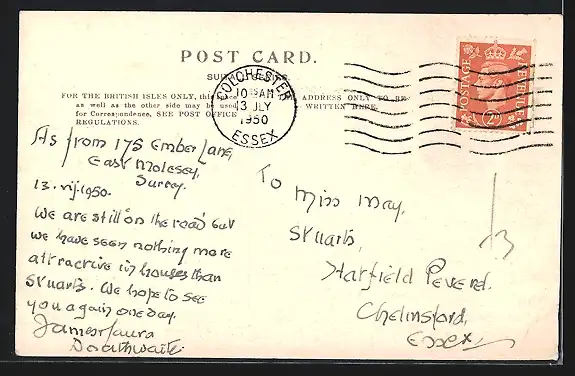 POST CARD.
FOR THE BRITISH ISLES ONLY, this
as well as the other side may be used
for Correspondence, SEE POST OFFICE
REGULATIONS.
ADDRESS ONLY TO BE
WRITTEN HERE.
COLCHESTER
10 AM
13 JLY
1950
ESSEX
POSTAGE
REVENUE
2D
As from 175 Ember Lane,
East Molesey,
Surrey.
13.vij.1950.
We are still 'on the road' but
we have seen nothing more
attractive in houses than
Stuarts. We hope to see
you again one day.
James Laura
Doathwaite
To Miss May,
Stuarts,
Hatfield Peverel.
Chelmsford,
Essex